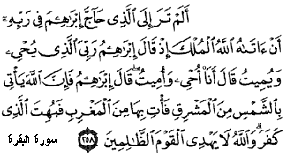 أَلَمْ تَرَ إِلَى ٱلَّذِى حَآجَّ إِبْرَٰهِـۧمَ فِى رَبِّهِۦٓ
أَنْ ءَاتَىٰهُ ٱللَّهُ ٱلْمُلْكَ إِذْ قَالَ إِبْرَٰهِـۧمُ رَبِّىَ ٱلَّذِى يُحْىِۦ
وَيُمِيتُ قَالَ أَنَا۠ أُحْىِۦ وَأُمِيتُ ۖ قَالَ إِبْرَٰهِـۧمُ فَإِنَّ ٱللَّهَ يَأْتِى
بِٱلشَّمْسِ مِنَ ٱلْمَشْرِقِ فَأْتِ بِهَا مِنَ ٱلْمَغْرِبِ فَبُهِتَ ٱلَّذِى
كَفَرَ ۗ وَٱللَّهُ لَا يَهْدِى ٱلْقَوْمَ ٱلظَّـٰلِمِينَ ٢٥٨ سورة البقرة